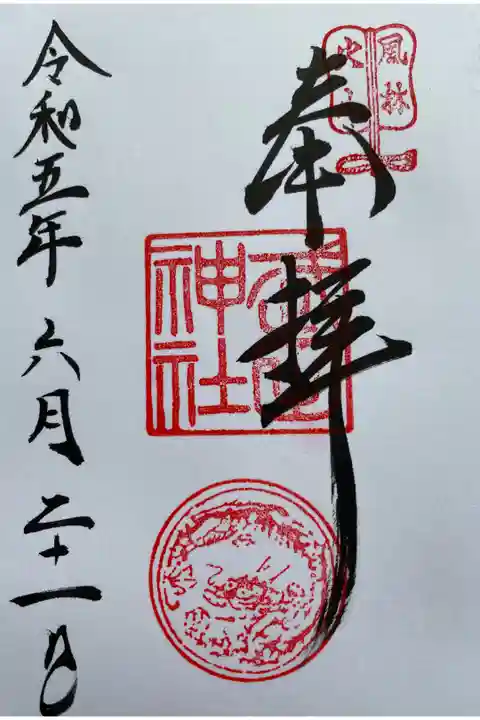 風林
火山
奉拝
武田
神社
令和五年 六月 二十一日